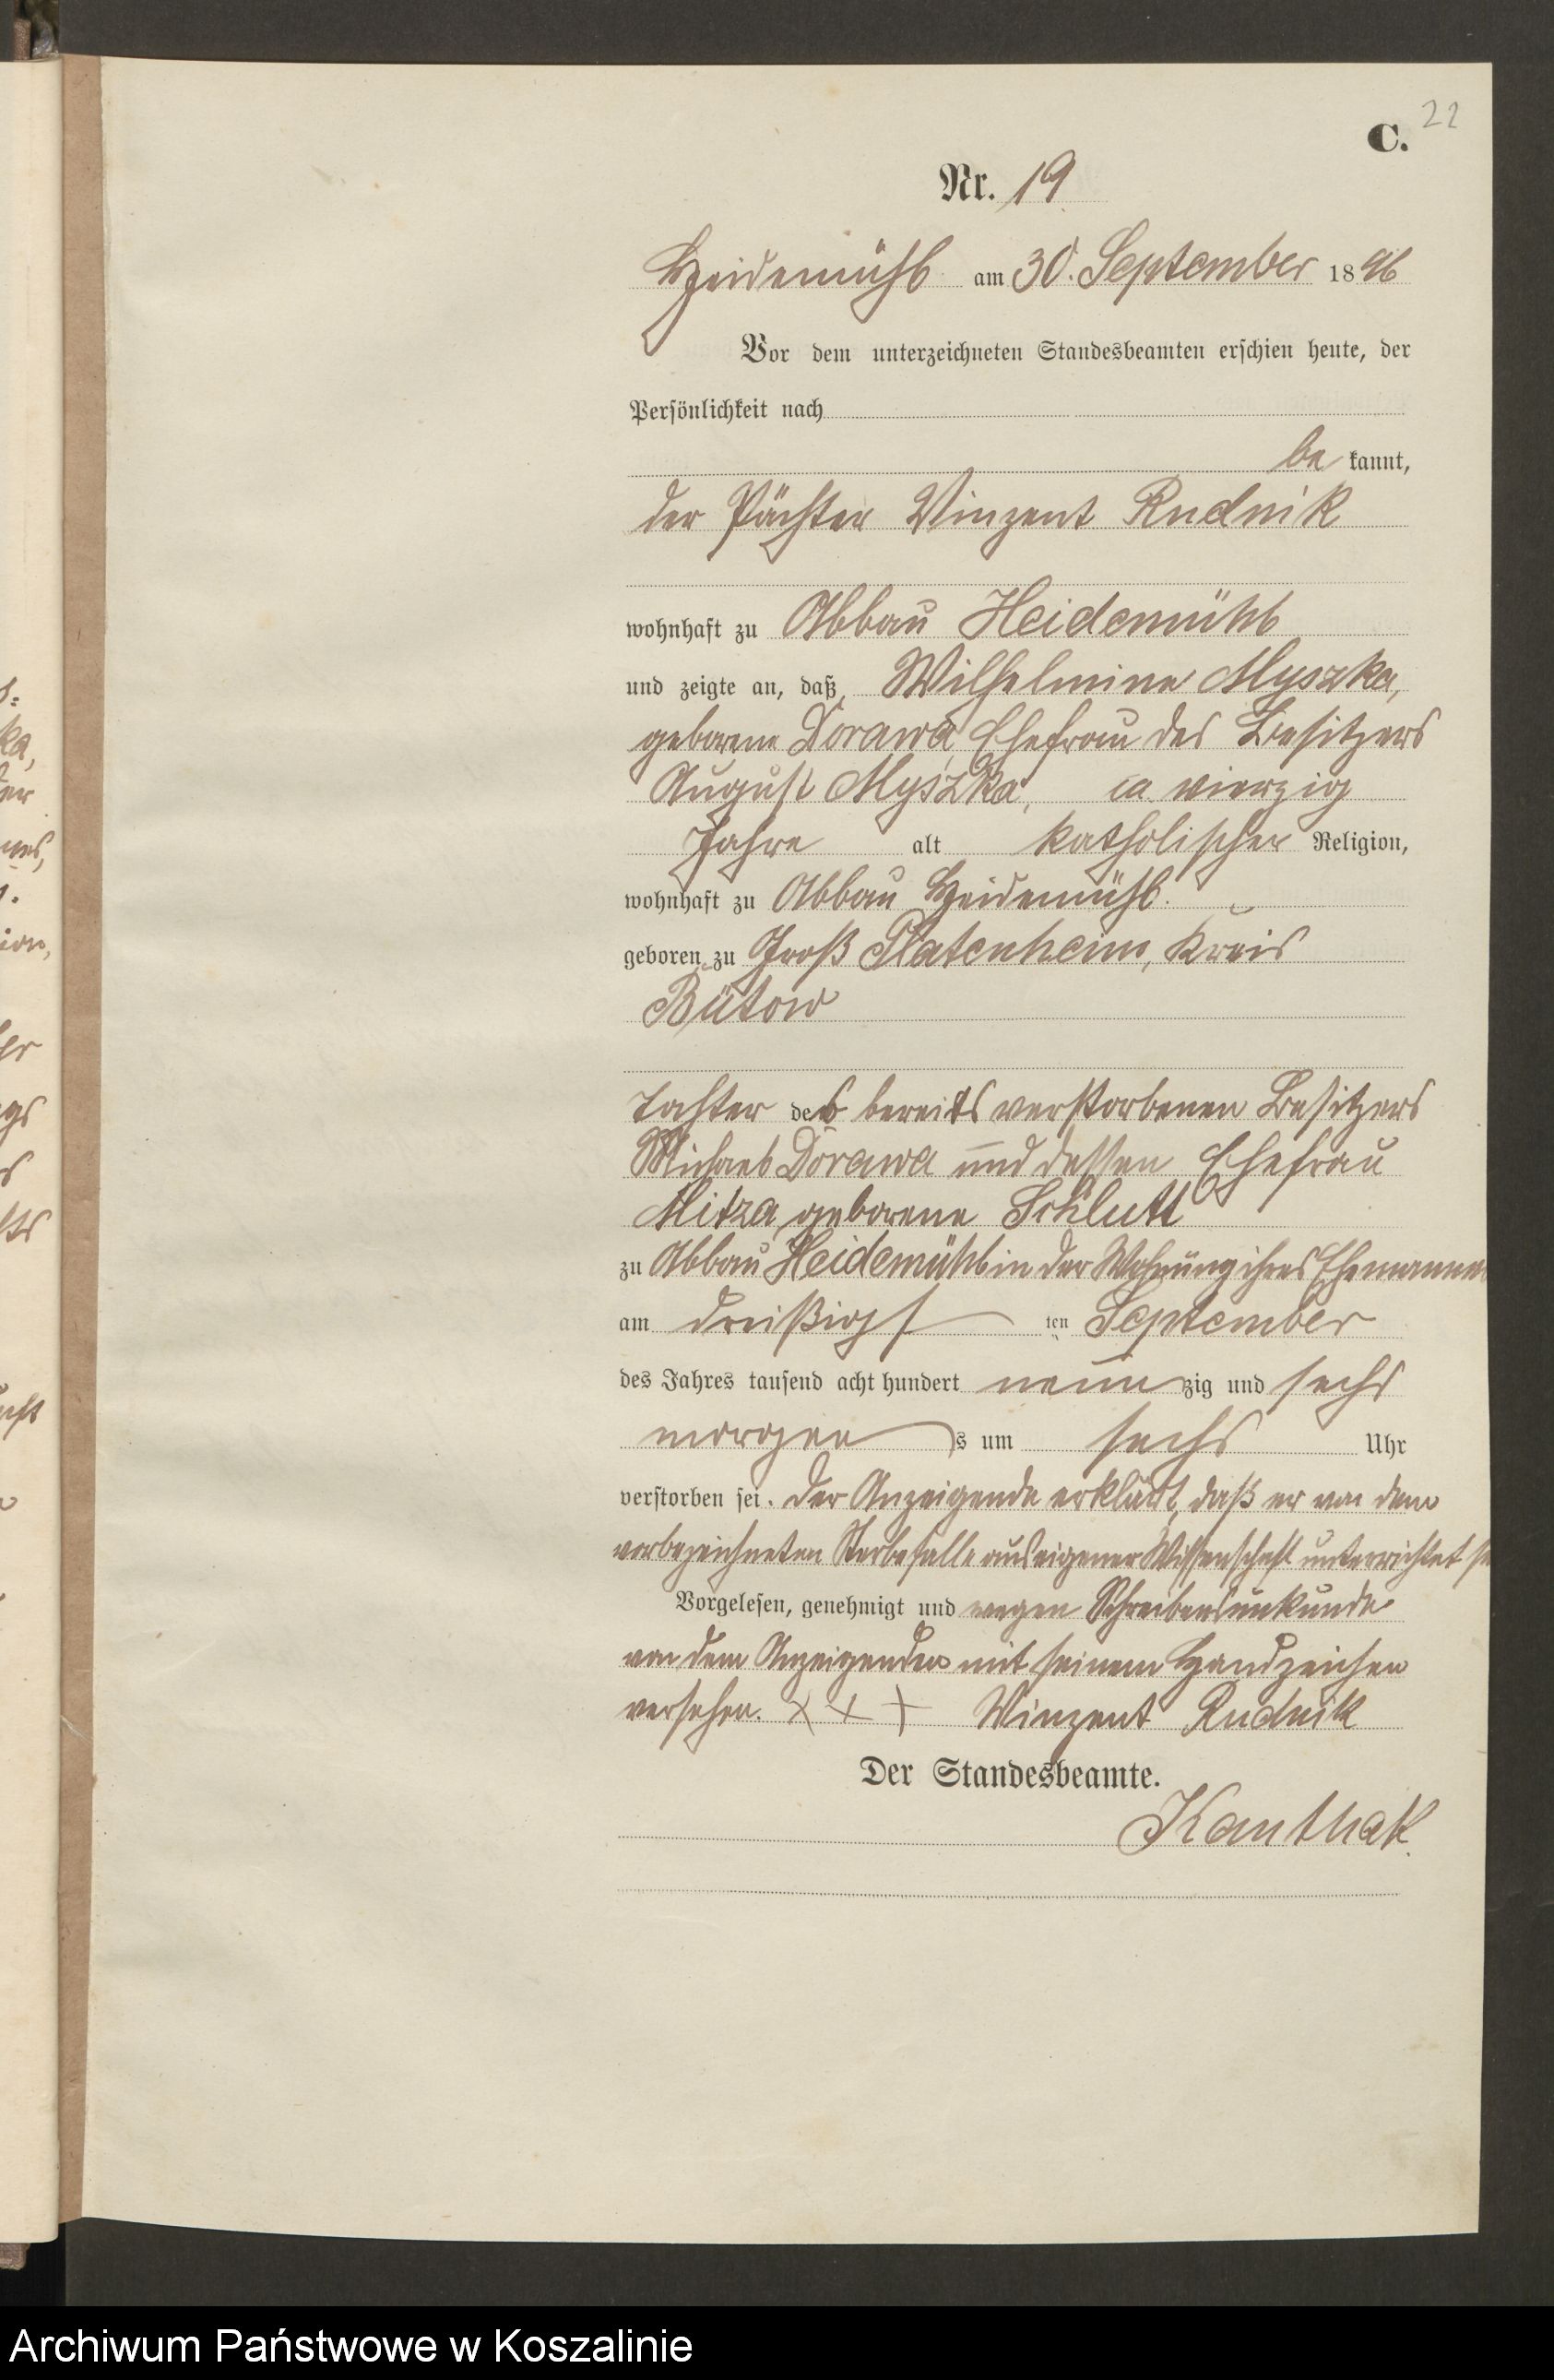 22
C.
Nr. 19
Heidemühl am 30. September 1896
Vor dem unterzeichneten Standesbeamten erschien heute, der
Persönlichkeit nach
be kannt,
der Pächter Vinzent Rudnik
wohnhaft zu Abbau Heidemühl
und zeigte an, daß Wilhelmine Myszka,
geborene Dorawa, Ehefrau des Besitzers
August Myszka, ca vierzig
Jahre alt katholischer Religion,
wohnhaft zu Abbau Heidemühl.
geboren zu Groß Platenheim, Kreis
Bütow
Tochter des bereits verstorbenen Besitzers
Michael Dorawa und dessen Ehefrau
geborene Schlutt
zu Abbau Heidemühl in der Wohnung ihres Ehemannes
am dreißigs ten September
des Jahres tausend acht hundert neun zig und sechs
morgen s um sechs Uhr
verstorben sei. Der Anzeigende erklärt, daß er von dem
vorbezeichneten Sterbefalle aus eigener Wissenschaft unterrichtet
Vorgelesen, genehmigt und wegen Schreibensunkunde
von dem Anzeigenden mit seinem Handzeichen
versehen. + + + Vinzent Rudnik
Der Standesbeamte.
Kanthak.
Archiwum Państwowe w Koszalinie